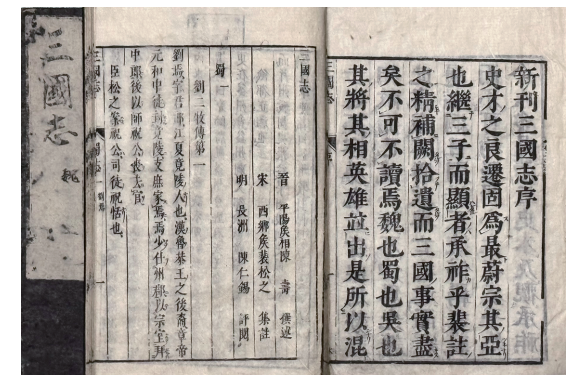 新刊三國志序
史才之良遷固爲最蔚宗其亞
也繼三子而顯者承祚乎裴註
之精補闕拾遺而三國事實盡
矣不可不讀焉魏也蜀也吳也
其將其相英雄並出是所以混
三國志
晉 平陽矦相陳 壽 撰述
宋 西鄉矦裴松之 集註
明 長洲 陳仁錫 評閱
蜀一
劉二牧傳第一
劉焉字君郎江夏竟陵人也漢魯恭王之後裔章帝
元和中徙封竟陵支庶家焉焉少仕州郡以宗室拜
中郎後以師祝公喪去官
臣松之案祝公司徒祝恬也
三國志 蜀志 一
三國志 魏